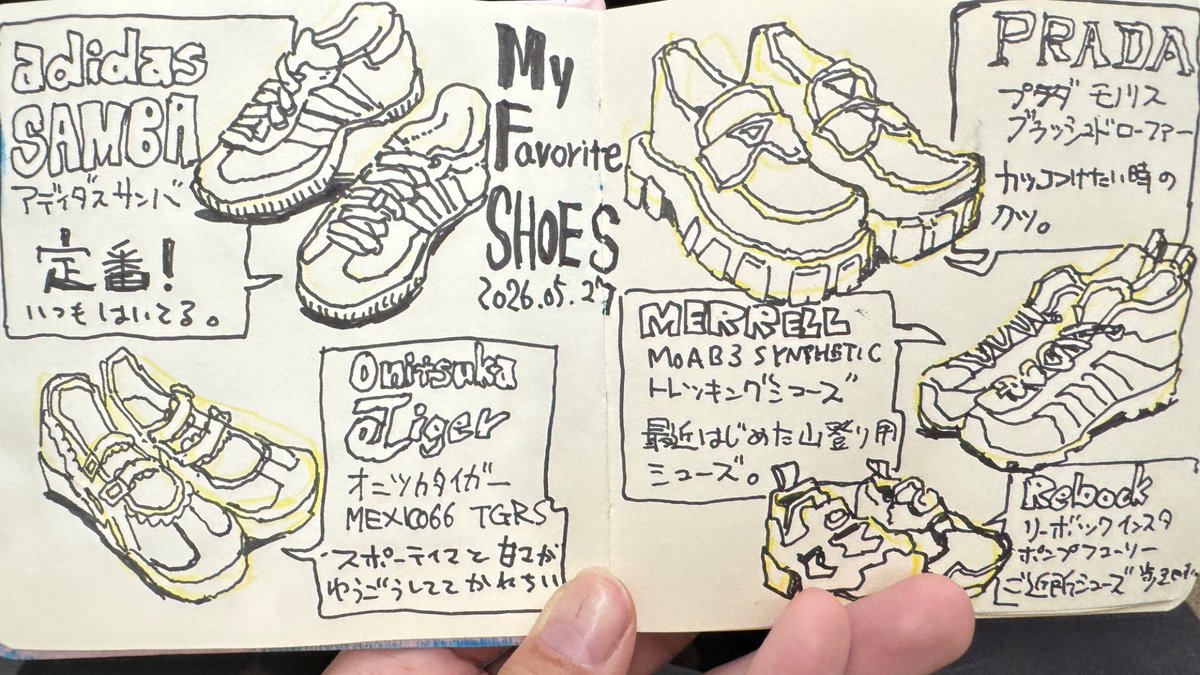 adidas
SAMBA
アディダスサンバ
定番!
いつもはいてる。
My
Favorite
SHOES
2026.05.27
Onitsuka
Tiger
オニツカタイガー
MEXICO66 TGRS
スポーティさと甘さが
ゆうごうしててかわちい
PRADA
プラダ モノリス
ブラッシュドローファー
カッコつけたい時の
クツ。
MERRELL
MOAB3 SYNTHETIC
トレッキングシューズ
最近はじめた山登り用
シューズ。
Rebook
リーボックインスタ
ポンプフューリー
ご近所シューズ